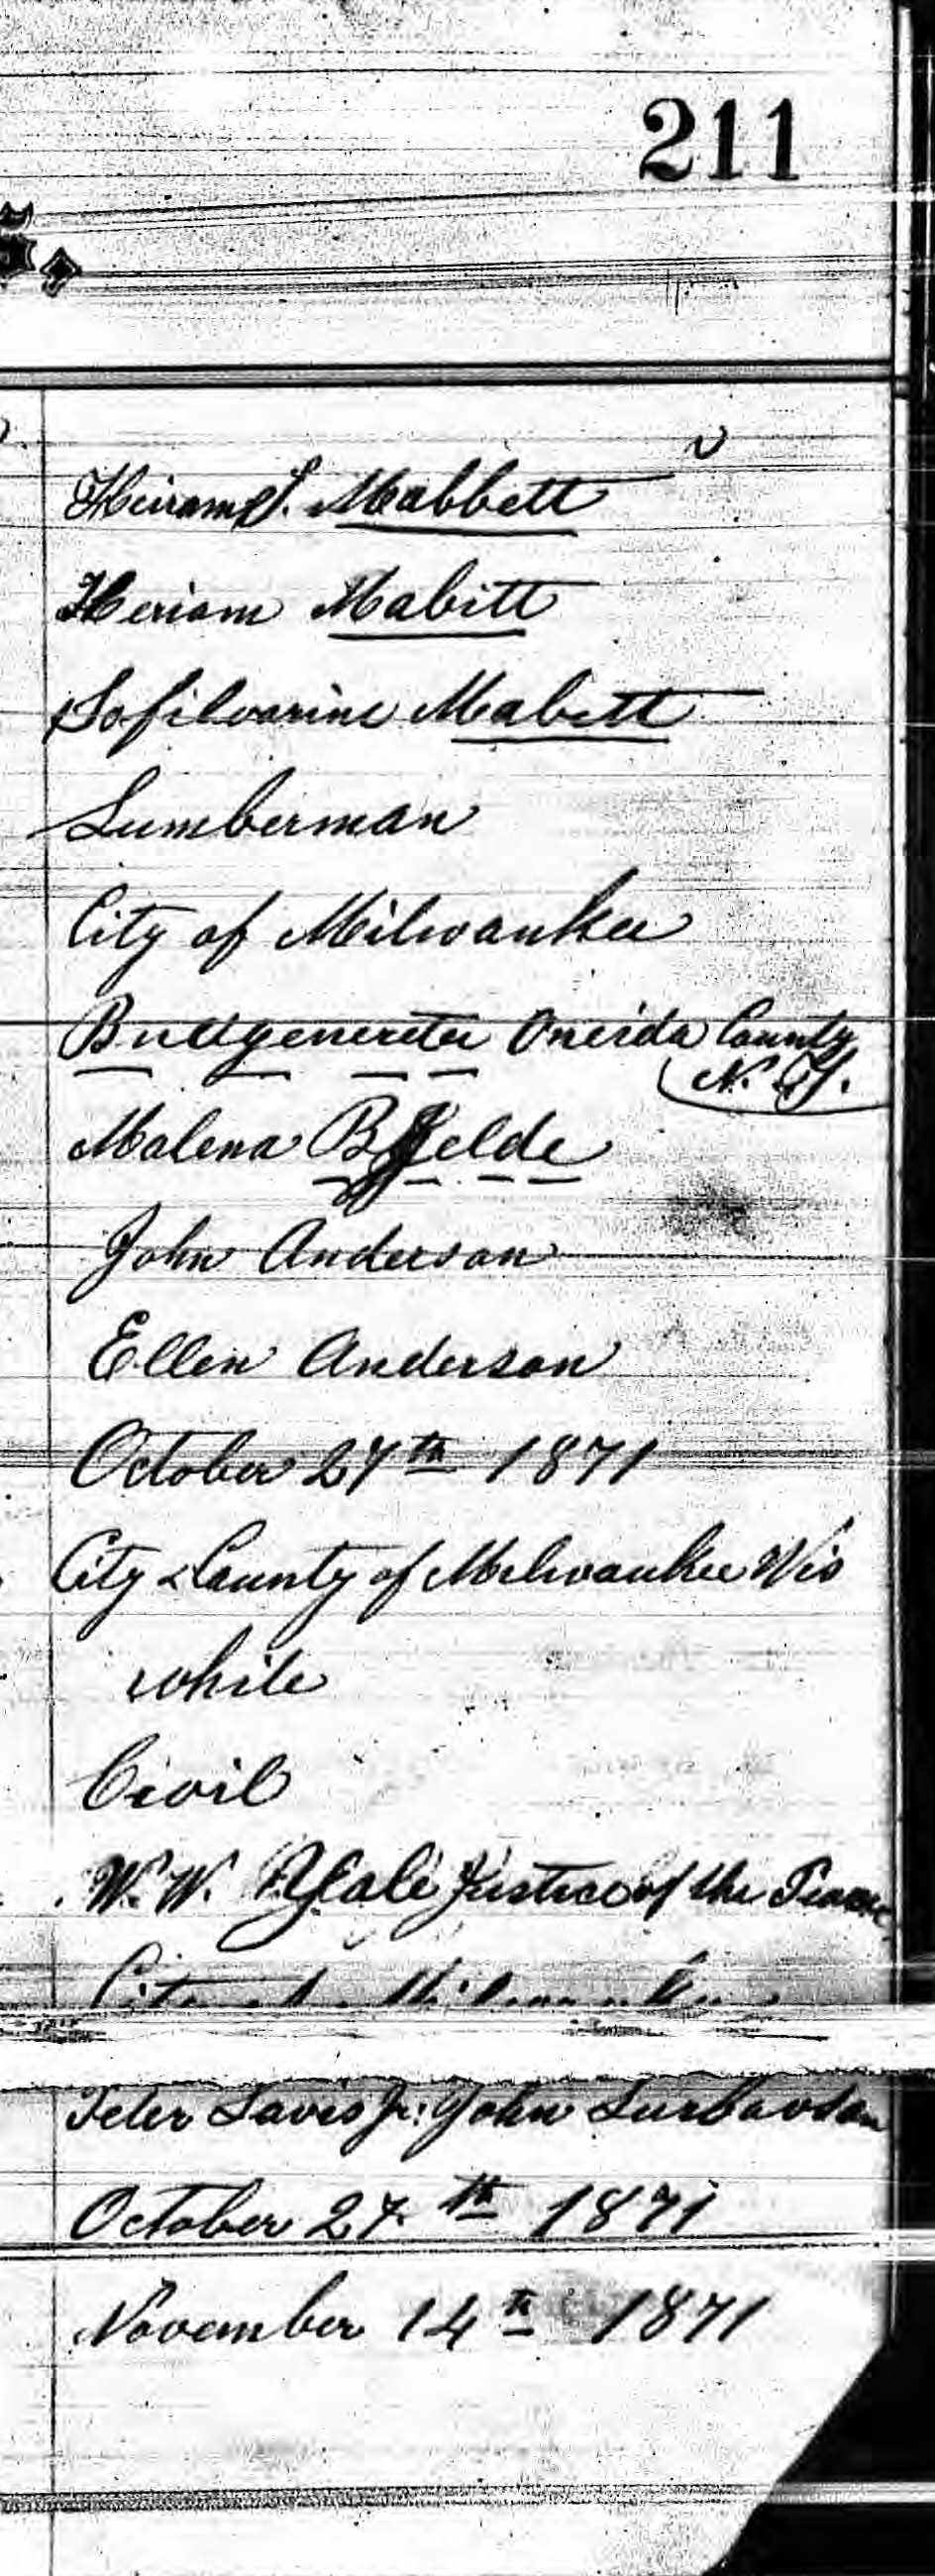 211
Heiram S. Mabbett
Heriam Mabitt
Sofilvarine Mabett
Lumberman
City of Milwaukee
Oneida County
N. Y.
Malena
John Anderson
Ellen Anderson
October 27th 1871
City & County of Milwaukee Wis
white
Civil
W. W. Yale Justice of the Peace
City of Milwaukee
Peter Davis Jr. John
October 27th 1871
November 14th 1871